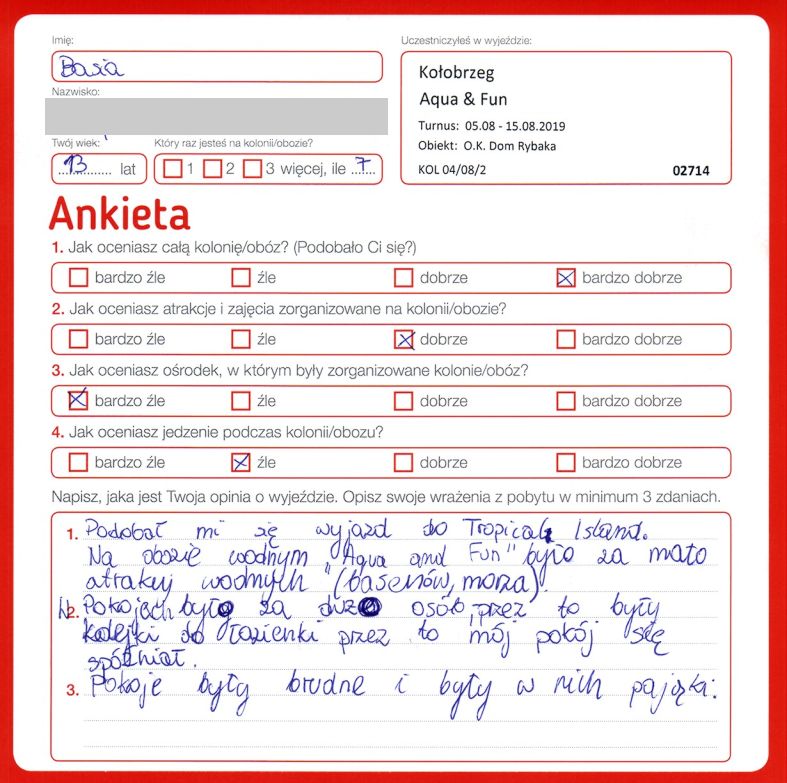 Imię:
Basia
Nazwisko:
Twój wiek:
13 lat
Który raz jesteś na kolonii/obozie?
1 2 3 więcej, ile 7
Uczestniczyłeś w wyjeździe:
Kołobrzeg
Aqua & Fun
Turnus: 05.08 - 15.08.2019
Obiekt: O.K. Dom Rybaka
KOL 04/08/2 02714
Ankieta
1. Jak oceniasz całą kolonię/obóz? (Podobało Ci się?)
bardzo źle źle dobrze bardzo dobrze
2. Jak oceniasz atrakcje i zajęcia zorganizowane na kolonii/obozie?
bardzo źle źle dobrze bardzo dobrze
3. Jak oceniasz ośrodek, w którym były zorganizowane kolonie/obóz?
bardzo źle źle dobrze bardzo dobrze
4. Jak oceniasz jedzenie podczas kolonii/obozu?
bardzo źle źle dobrze bardzo dobrze
Napisz, jaka jest Twoja opinia o wyjeździe. Opisz swoje wrażenia z pobytu w minimum 3 zdaniach.
1. Podobał mi się wyjazd do Tropical Island.
Na obozie wodnym "Aqua and Fun" było za mało
atrakcji wodnych (basenów, morza).
W 2. Pokojach było za dużo osób, przez to były
kolejki do łazienki przez to mój pokój się
spóźniał.
3. Pokoje były brudne i były w nich pająki.